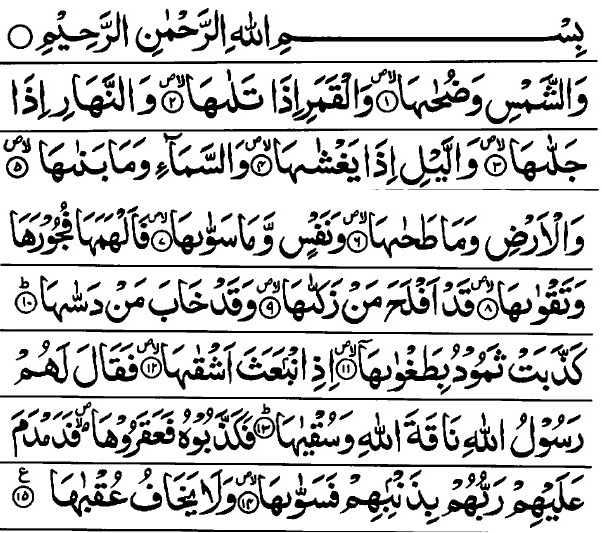 بِسْمِ اللهِ الرَّحْمٰنِ الرَّحِيْمِ ○
وَالشَّمْسِ وَضُحٰىهَا ۙ﴿۱﴾ وَالْقَمَرِ اِذَا تَلٰىهَا ۙ﴿۲﴾ وَالنَّهَارِ اِذَا
جَلّٰىهَا ۙ﴿۳﴾ وَالَّيْلِ اِذَا يَغْشٰىهَا ۙ﴿۴﴾ وَالسَّمَآءِ وَمَا بَنٰىهَا ۙ﴿۵﴾
وَالْاَرْضِ وَمَا طَحٰىهَا ۙ﴿۶﴾ وَنَفْسٍ وَّمَا سَوّٰىهَا ۙ﴿۷﴾ فَاَلْهَمَهَا فُجُوْرَهَا
وَتَقْوٰىهَا ۙ﴿۸﴾ قَدْ اَفْلَحَ مَنْ زَكّٰىهَا ۙ﴿۹﴾ وَقَدْ خَابَ مَنْ دَسّٰىهَا ؕ﴿۱۰﴾
كَذَّبَتْ ثَمُوْدُ بِطَغْوٰىهَاۤ ۙ﴿۱۱﴾ اِذِ انْۢبَعَثَ اَشْقٰىهَا ۙ﴿۱۲﴾ فَقَالَ لَهُمْ
رَسُوْلُ اللهِ نَاقَةَ اللهِ وَسُقْيٰهَا ؕ﴿۱۳﴾ فَكَذَّبُوْهُ فَعَقَرُوْهَا ۪ۙ فَدَمْدَمَ
عَلَيْهِمْ رَبُّهُمْ بِذَنْۢبِهِمْ فَسَوّٰىهَا ۙ﴿۱۴﴾ وَلَا يَخَافُ عُقْبٰهَا ﴿۱۵﴾ ع